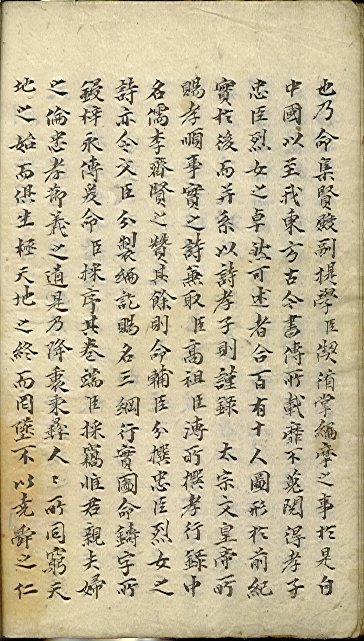 也乃命集賢殿副提學臣偰循掌編摩之事於是自
中國以至我東方古今書傳所載靡不蒐閱得孝子
忠臣烈女之卓然可述者合百有十人圖形於前紀
實於後而并系以詩孝子則謹錄 太宗文皇帝所
賜孝順事實之詩兼取臣高祖臣溥所撰孝行錄中
名儒李齊賢之贊其餘則命輔臣分撰忠臣烈女之
詩亦令文臣分製編訖賜名三綱行實圖命鑄字所
鋟梓永傳爰命臣採序其卷端臣採竊惟君親夫婦
之倫忠孝節義之道是乃降衷秉彝人々所同窮天
地之始而俱生極天地之終而罔墜不以堯舜之仁